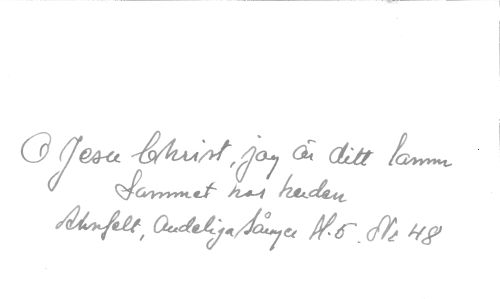 O Jesu Christ, jag är ditt lamm
Lammet hos herden
Ahnfelt, Andeliga Sånger H. 5. Nr 48